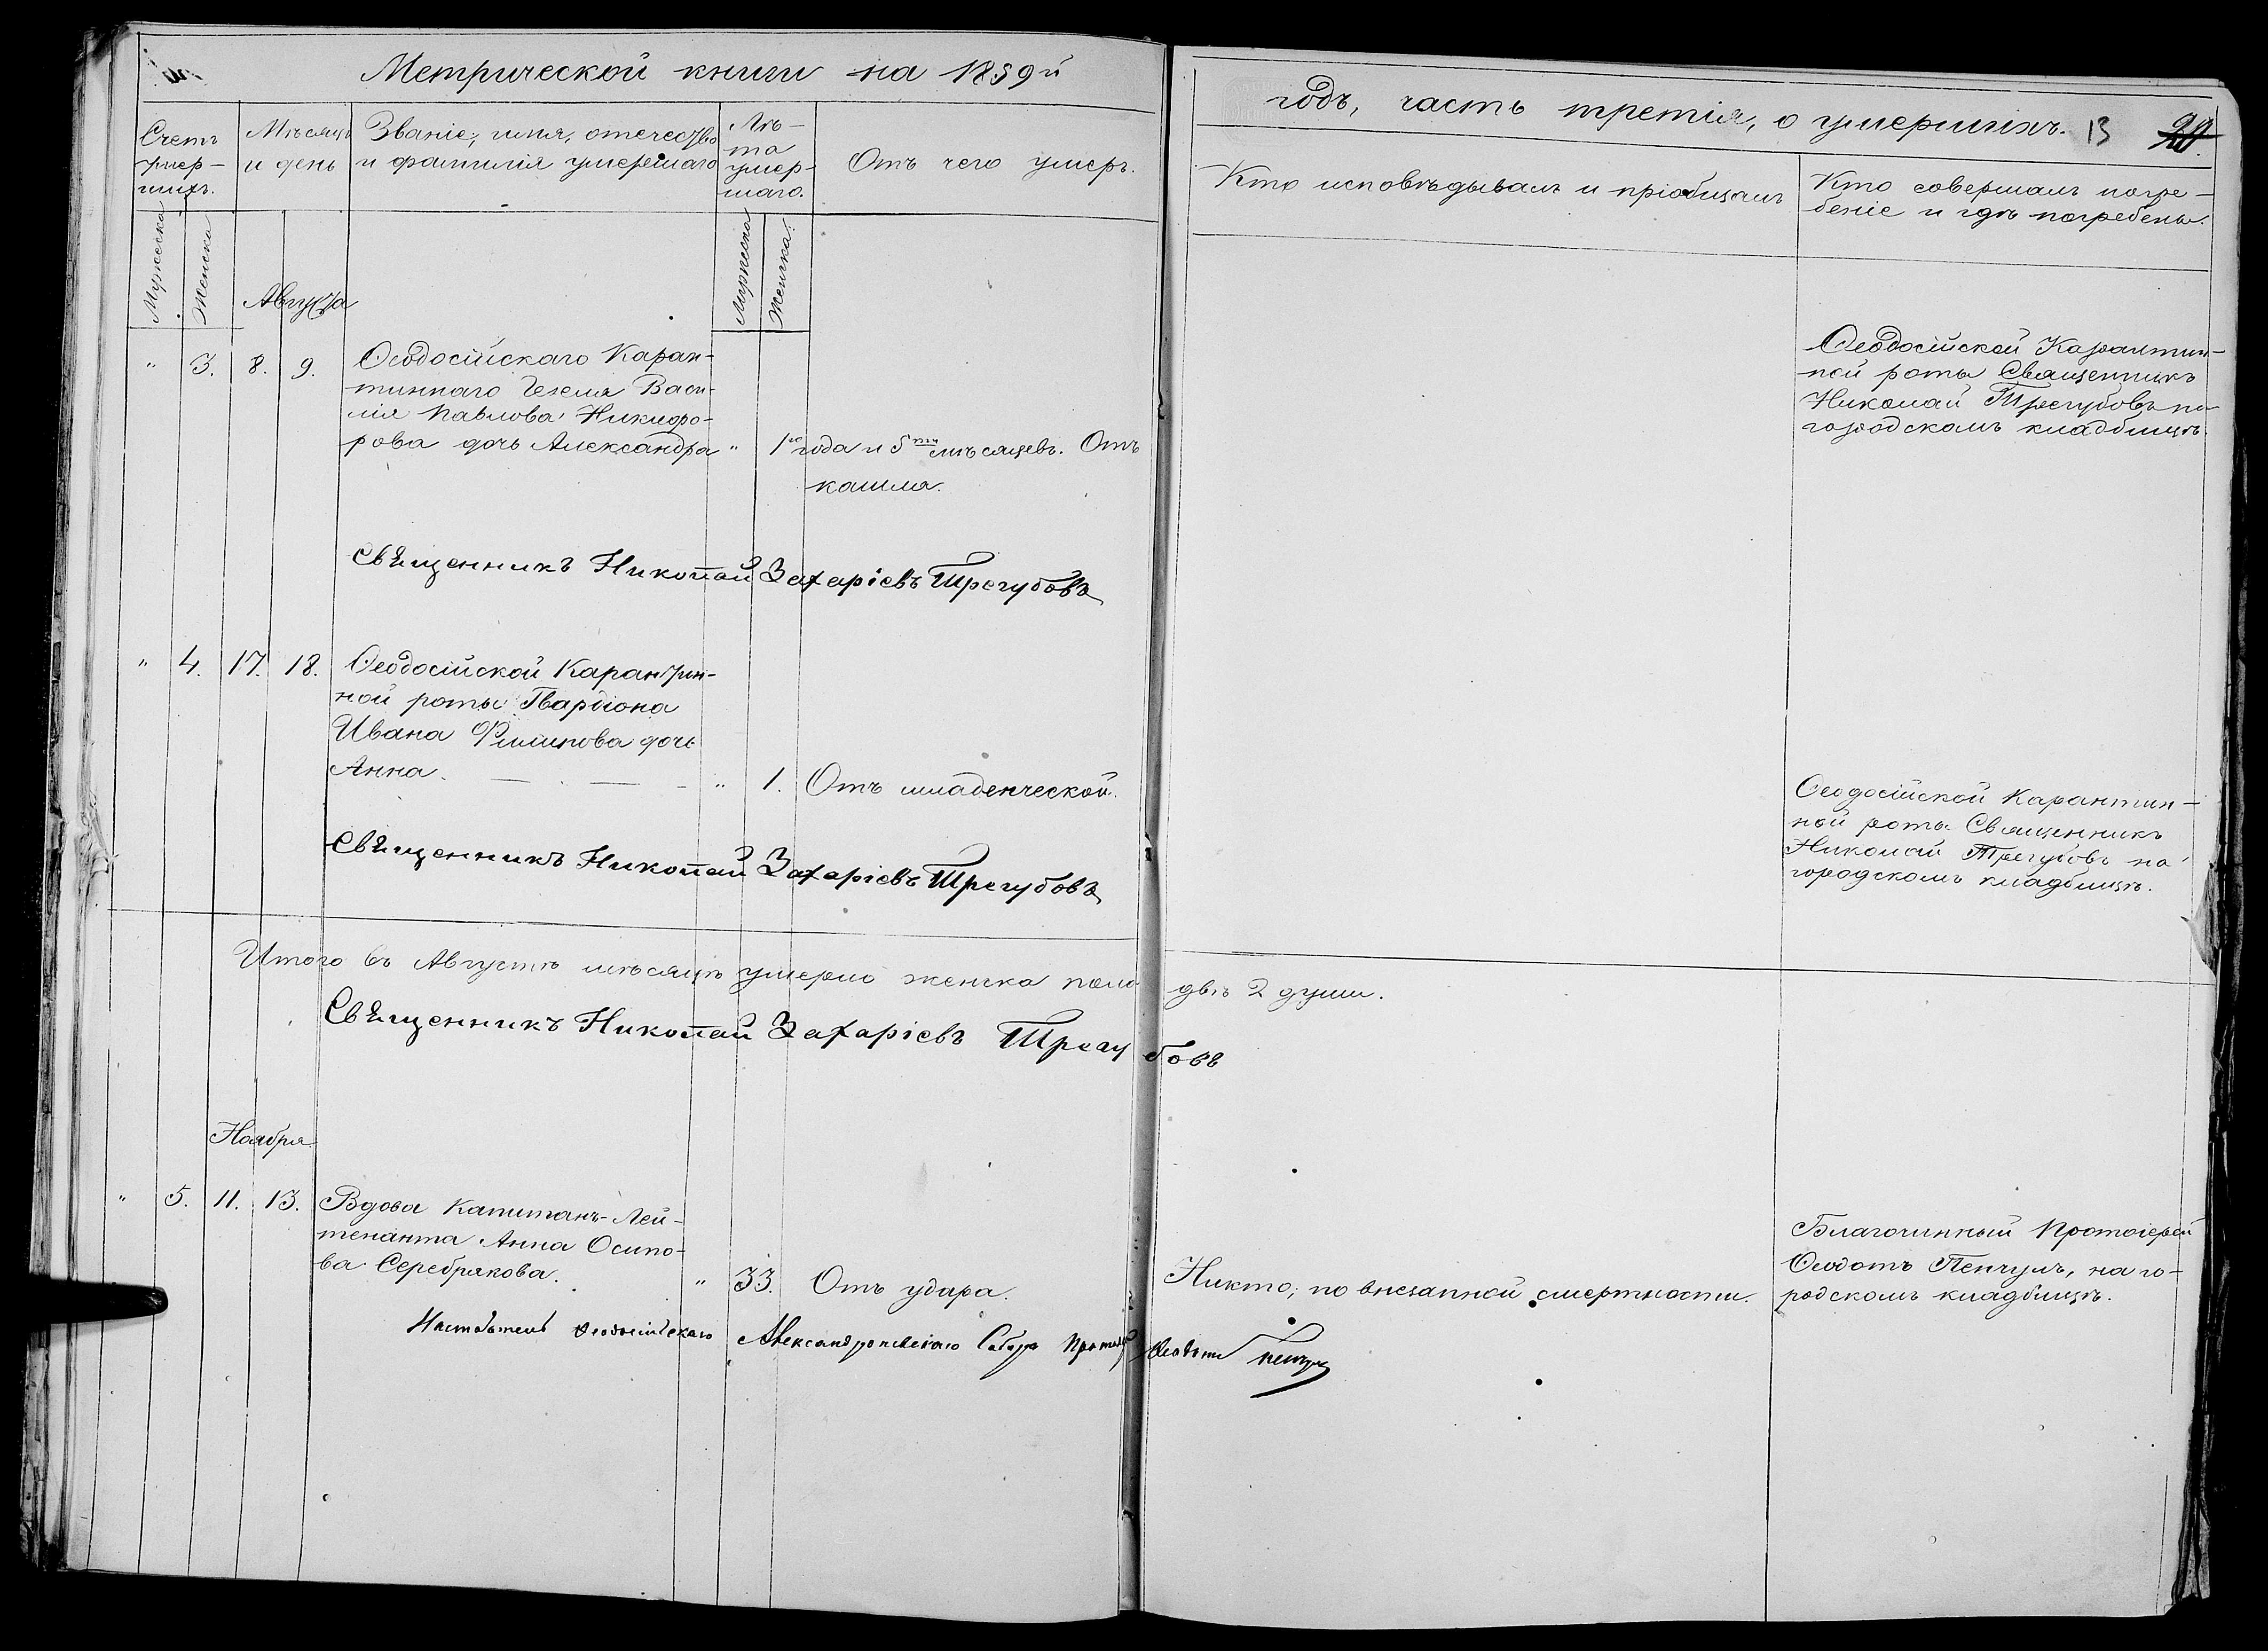 Метрической книги на 1859й
годъ, часть третія, о умершихъ. 13 20.
Счетъ
умер-
шихъ.
Мѣсяцъ
и день
Званіе, имя, отечество
и фамилія умершаго
Лѣ-
та
умер-
шаго.
Отъ чего умеръ.
Кто исповѣдывалъ и пріобщалъ
Кто совершалъ погре-
беніе и гдѣ погребены.
Мужеска
Женска
Мужеска
Женска.
Августа
" 3. 8. 9. Ѳеодосійскаго Каран-
тиннаго Васи-
лія Павлова Никифо-
рова дочь Александра " 1го года и 5ти мѣсяцевъ. Отъ
кашля.
Ѳеодосійской Карантин-
ной роты Священникъ
Николай Трегубовъ на
городскомъ кладбищѣ.
Священникъ Николай Захаріевъ Трегубовъ
" 4. 17. 18. Ѳеодосійской Карантин-
ной роты Гвардіона
Ивана Филипова дочь
Анна. " 1. Отъ младенческой.
Ѳеодосійской Карантин-
ной роты Священникъ
Николай Трегубовъ на
городскомъ кладбищѣ.
Священникъ Николай Захаріевъ Трегубовъ
Итого въ Августѣ мѣсяцѣ умерло женска пола двѣ 2 души.
Священникъ Николай Захаріевъ Трегубовъ
Ноября
" 5. 11. 13. Вдова Капитанъ-Лей-
тенанта Анна Осипо-
ва Серебрякова. " 33. Отъ удара.
Никто, по внезапной смертности.
Благочинный Протоіерей
Ѳеодотъ Пенчулъ, на го-
родскомъ кладбищѣ.
Настоятель Ѳеодосійскаго Александроневскаго Собора Ѳеодотъ Пенчулъ